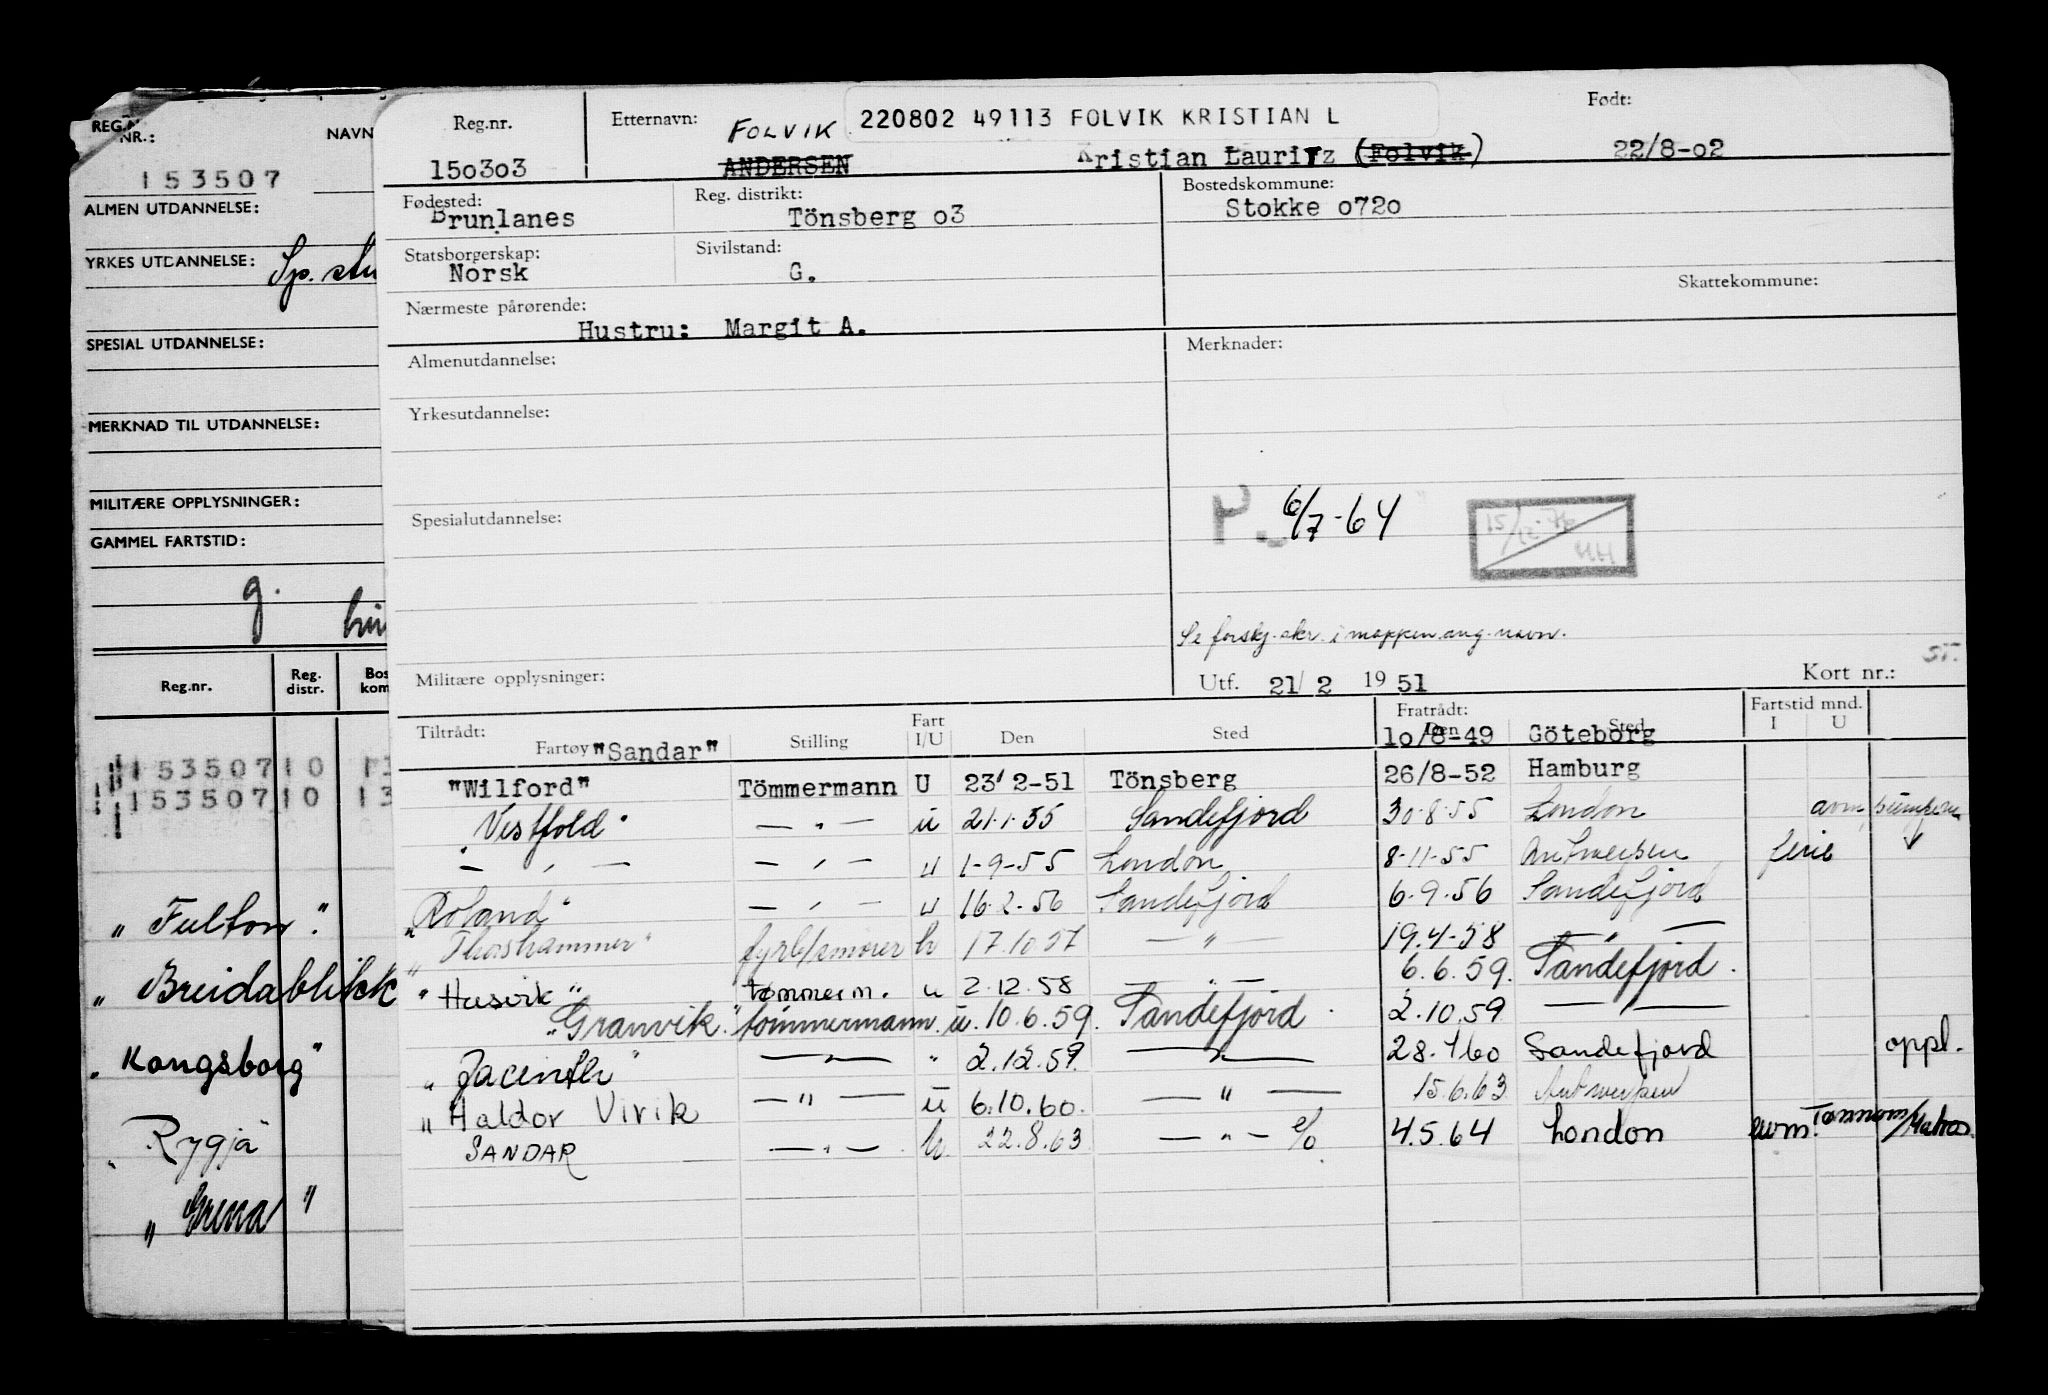 REG.N
NR.:
NAVN
153507
ALMEN UTDANNELSE:
YRKES UTDANNELSE: Sp.
SPESIAL UTDANNELSE:
MERKNAD TIL UTDANNELSE:
MILITÆRE OPPLYSNINGER:
GAMMEL FARTSTID:
g.
Reg.nr. Reg. distr. Bos kom
153507 10 13
153507 10 13
"Fulton"
"Breidablikk
"Kongsborg"
Rygja
Reg.nr. Etternavn: 220802 49113 FOLVIK KRISTIAN L Født:
FOLVIK
150303 ANDERSEN Kristian Lauritz (Folvik) 22/8-02
Fødested: Reg. distrikt: Bostedskommune:
Brunlanes Tönsberg o3 Stokke o72o
Statsborgerskap: Sivilstand:
Norsk G.
Skattekommune:
Nærmeste pårørende:
Hustru: Margit A.
Almenutdannelse: Merknader:
Yrkesutdannelse:
P. 6/7-64
15/12-76
HH
Spesialutdannelse:
Se forskj. skr. i mappen ang. navn.
Militære opplysninger: Utf. 21/2 1951 Kort nr.:
Tiltrådt: Fratrådt: Fartstid mnd.
Fartøy Stilling Fart I/U Den Sted Den Sted I U
"Sandar" 10/8-49 Göteborg
"Wilford" Tömmermann U 23/2-51 Tönsberg 26/8-52 Hamburg
"Vestfold" — " — u 21.1.55 Sandefjord 30.8.55 London avm.
— " — — " — u 1-9-55 London 8-11-55 Antwerpen ferie
"Roland" — " — u 16.2.56 Sandefjord 6.9.56 Sandefjord
"Thorshammer" fyrb/smører h 17.10.57 — " — 19.4-58 — " —
"Husvik" tømmerm. u 2.12.58 — " — 6.6.59. Sandefjord.
"Granvik" tömmermann. ü. 10.6.59. Sandefjord. 2.10.59. — " —
"Jacinth" — " — " 2.12.59. — " — 28.4 60 Sandefjord oppl.
"Haldor Virik — " — ü 6.10.60. — " — 15.6.63 Antwerpen
SANDAR — " — h. 22.8.63 — " — 4.5.64 London avm. Tømmerm/Matros.